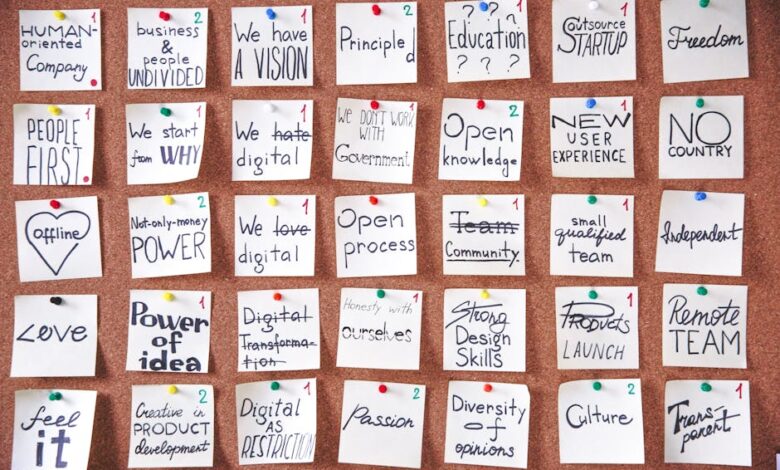 HUMAN-
oriented
Company
2
business
&
people
UNDIVIDED
1
We have
A VISION
2
Principled
1
Education
? ? ?
? ? ?
1
Outsource
STARTUP
Freedom
PEOPLE
FIRST
1
We start
from WHY
1
We hate
digital
1
WE DON'T WORK
WITH
Government
2
Open
knowledge
1
NEW
USER
EXPERIENCE
NO
COUNTRY
offline
2
Not-only-money
POWER
1
We love
digital
Open
process
1
Team
Community
1
small
qualified
team
Independent
LOVE
1
Power
of
idea
1
Digital
Transforma-
tion
1
Honesty with
ourselves
Strong
Design
Skills
1
Products
LAUNCH
Remote
TEAM
feel
it
2
Creative in
PRODUCT
development
1
Digital
AS
RESTRICTION
2
Passion
Diversity
of
opinions
2
Culture
1
Trans-
parent